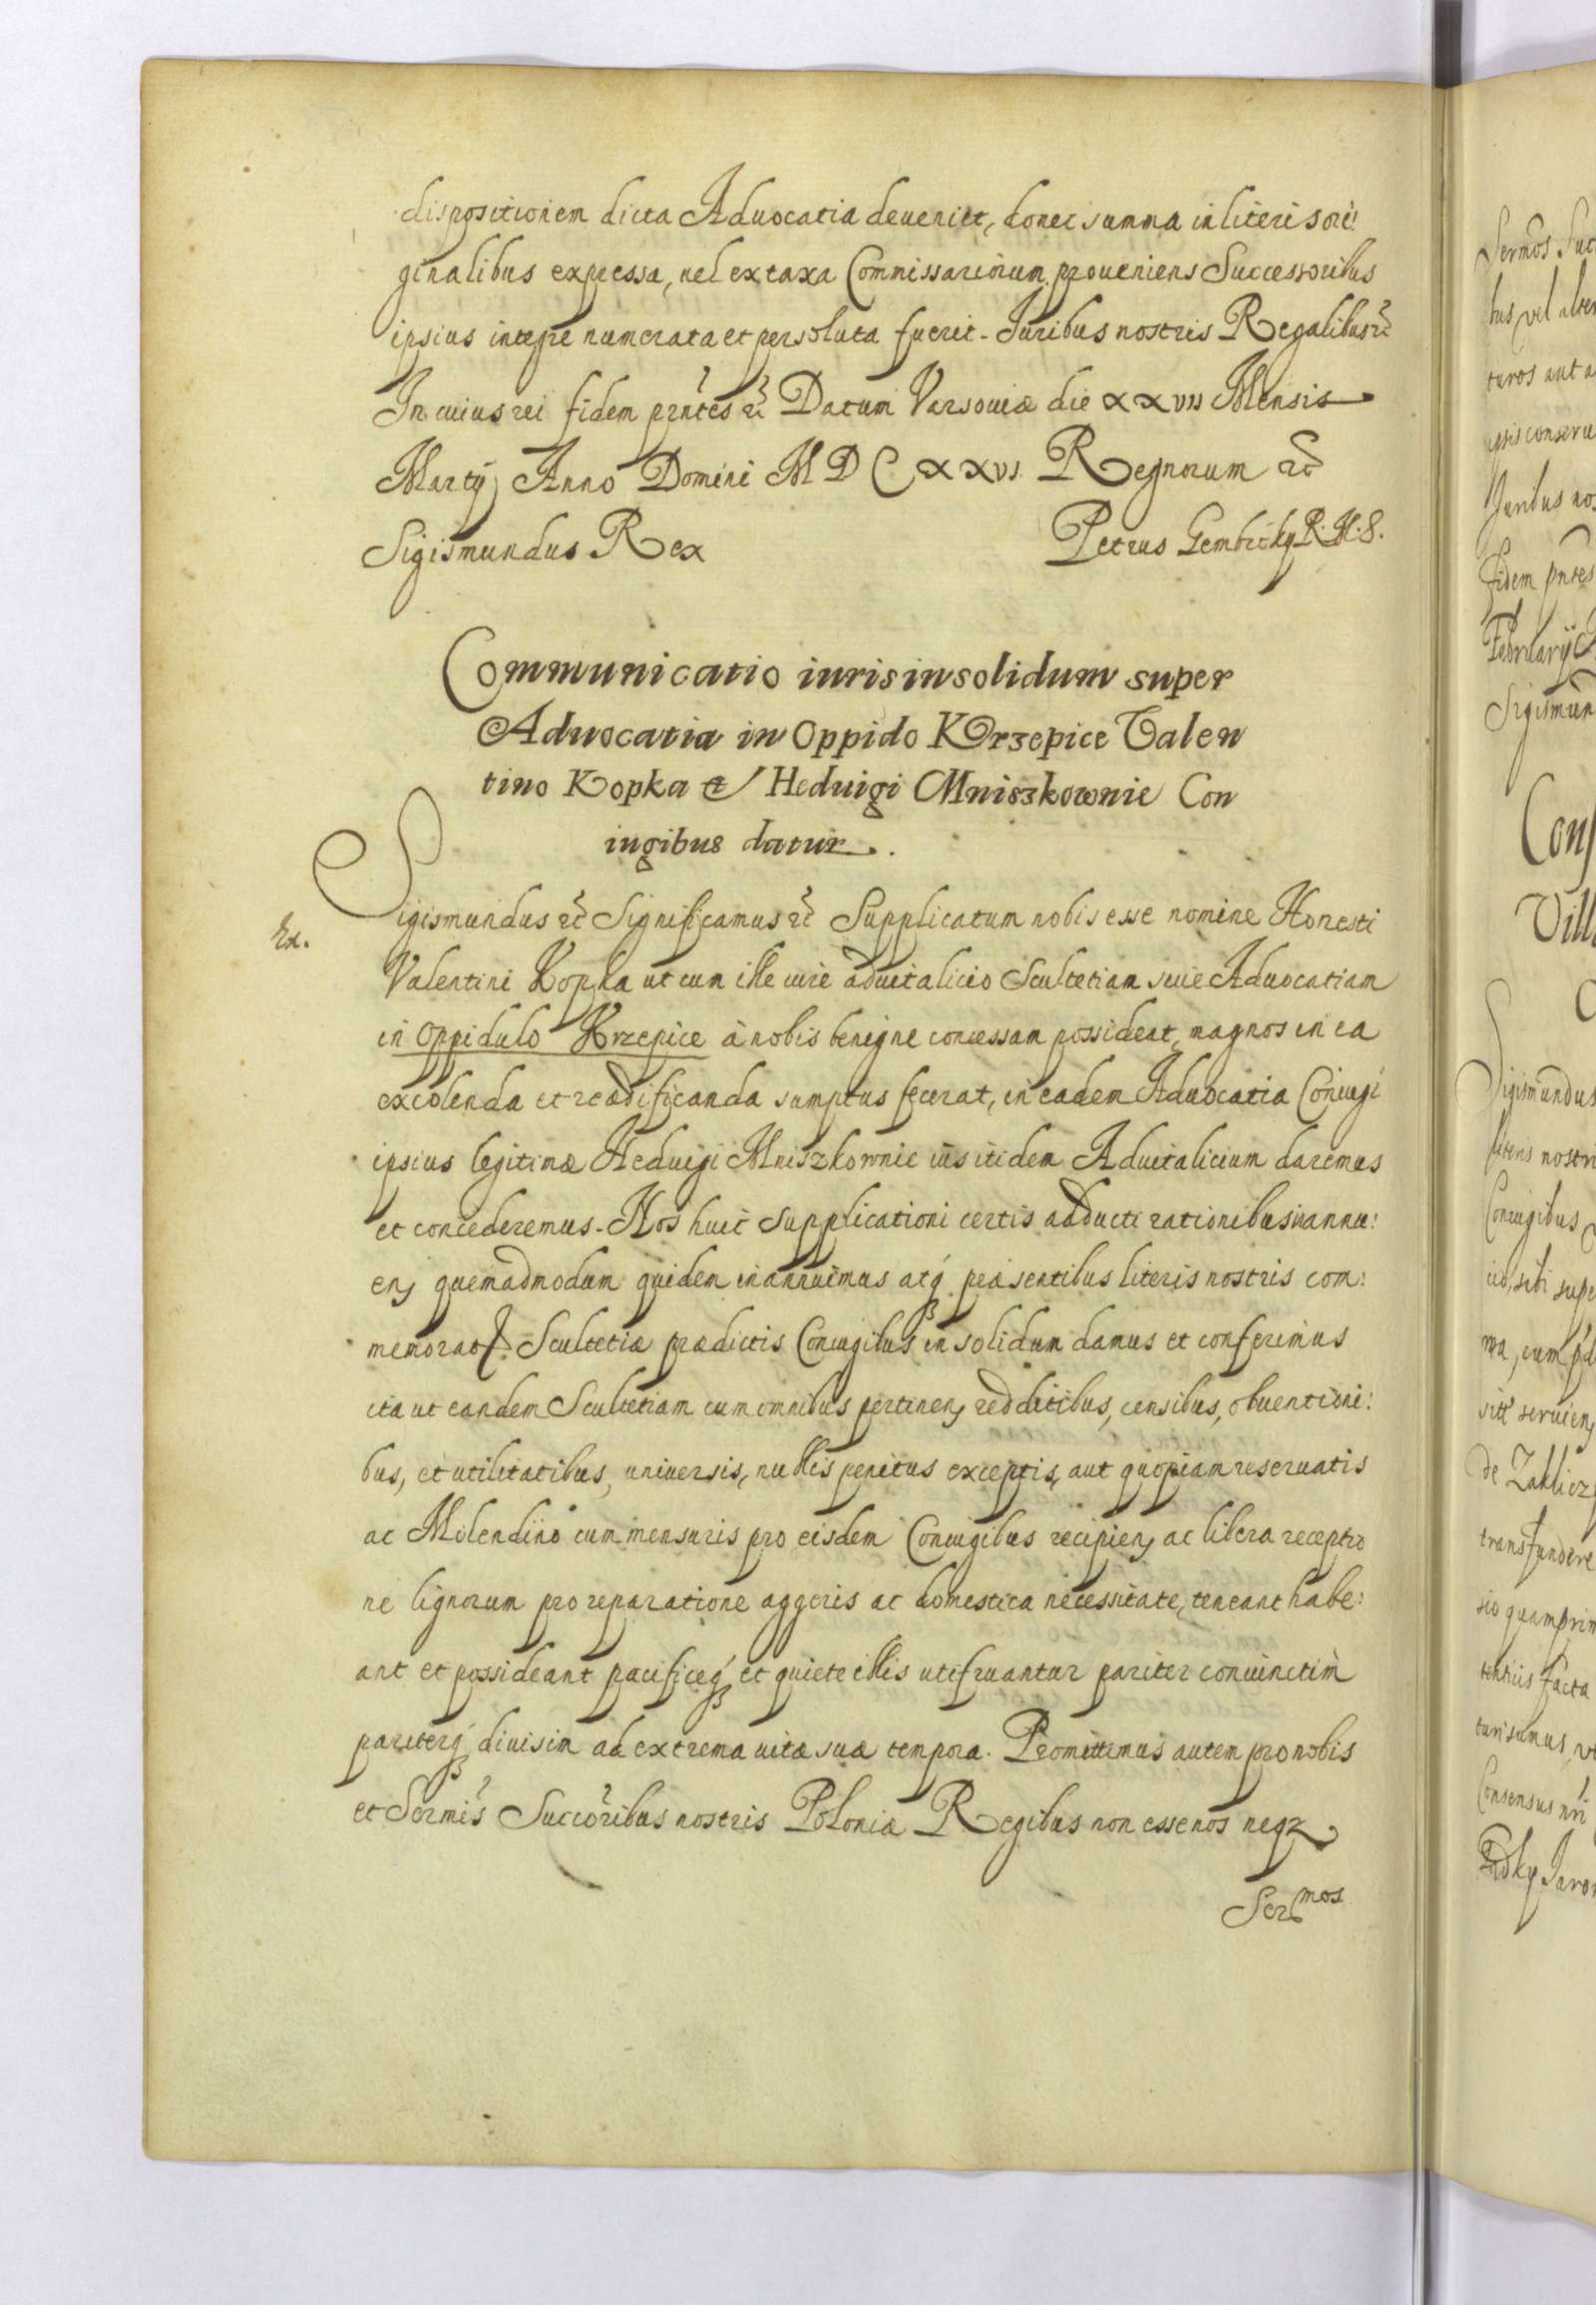 dispositionem dicta Aduocatia deueniet, donec summa in literis ori:
ginalibus expressa, uel ex taxa Commissariorum proueniens Successoribus
ipsius integre numerata et persoluta fuerit. Iuribus nostris Regalibus etc
In cuius rei fidem prntes etc Datum Varsouiæ die XXVII Mensis
Martij Anno Domini MDCXXVI. Regnorum etc
Sigismundus Rex Petrus Gembicky R. M. S.
Communicatio iuris in solidum super
Aduocatia in Oppido Krzepice Valen
tino Kopka et Heduigi Mniszkownie Con
iugibus datur.
Ex.
Sigismundus etc Significamus etc Supplicatum nobis esse nomine Honesti
Valentini Kopka ut cum ille iure aduitalicio Scultetiam siue Aduocatiam
in Oppidulo Krzepice à nobis benigne concessam possideat, magnos in ea
excolenda et reædificanda sumptus fecerat, in eadem Aduocatia Coniugi
ipsius legitimæ Heduigi Mniszkownie ius itidem Aduitalicium daremus
et concederemus. Nos huic supplicationi certis adducti rationibus inannu:
en, quemadmodum quidem inannuimus atq. præsentibus literis nostris com:
memorat Scultetiæ prædictis Coniugibus in solidum damus et conferimus
ita ut eandem Scultetiam cum omnibus pertinen, redditibus, censibus, obuentioni:
bus, et utilitatibus, uniuersis, nullis penitus exceptis, aut quopiam reseruatis
ac Molendino cum mensuris pro eisdem Coniugibus recipien, ac libera receptio
ne lignorum pro reparatione aggeris ac domestica necessitate, teneant habe:
ant et possideant pacificeq. et quiete illis utifruantur pariter coniunctim
pariterq. diuisim ad extrema uitæ suæ tempora. Promittimus autem pro nobis
et Sermis Succoribus nostris Poloniæ Regibus non esse nos neqz
Sermos
Sermos Suc
bus vel alter
turos aut a
ipsis conseru
Iuribus nos
fidem pntes
February
Sigismun
Cons
Vill
Sigismundus
literis nostri
Coniugibus
cio, sibi supe
ma, cum
seruien,
de Zaklicz
transfundere
sio quamprim
tentiis facta
turi sumus, vt
Consensus nri